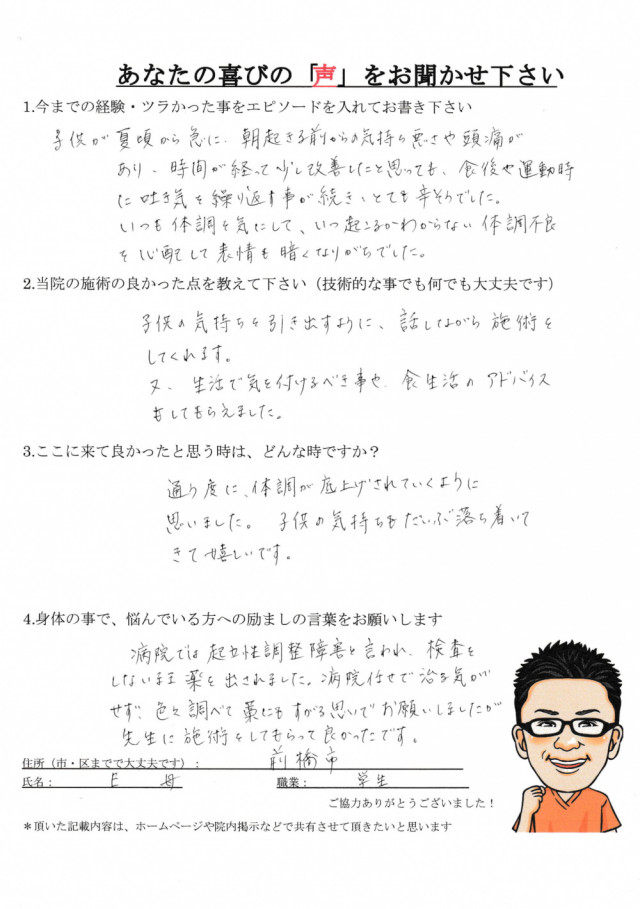 あなたの喜びの「声」をお聞かせ下さい
1.今までの経験・ツラかった事をエピソードを入れてお書き下さい
子供が夏頃から急に、朝起きる前からの気持ち悪さや頭痛が
あり、時間が経って少し改善したと思っても、食後や運動時
に吐き気を繰り返す事が続き、とても辛そうでした。
いつも体調を気にして、いつ起こるかわからない体調不良
を心配して表情も暗くなりがちでした。
2.当院の施術の良かった点を教えて下さい（技術的な事でも何でも大丈夫です）
子供の気持ちを引き出すように、話しながら施術を
してくれます。
又、生活で気を付けるべき事や、食生活のアドバイス
もしてもらえました。
3.ここに来て良かったと思う時は、どんな時ですか？
通う度に、体調が底上げされていくように
思いました。子供の気持ちもだいぶ落ち着いて
きて嬉しいです。
4.身体の事で、悩んでいる方への励ましの言葉をお願いします
病院では起立性調整障害と言われ、検査を
しないまま薬を出されました。病院任せで治る気が
せず、色々調べて藁にもすがる思いでお願いしましたが
先生に施術をしてもらって良かったです。
住所（市・区までで大丈夫です）： 前橋市
氏名： E 母 職業： 学生
ご協力ありがとうございました！
＊頂いた記載内容は、ホームページや院内掲示などで共有させて頂きたいと思います